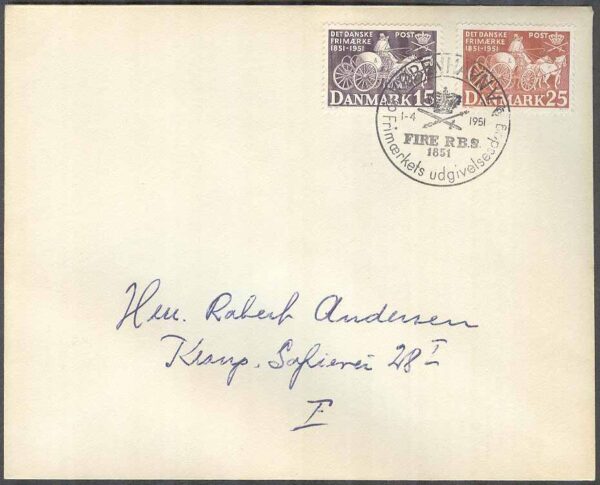 DET DANSKE POST
FRIMÆRKE
1851-1951
DANMARK 15
DET DANSKE POST
FRIMÆRKE
1851-1951
DANMARK 25
KØBENHAVN V.
1-4 1951
FIRE R.B.S.
1851
Frimærkets udgivelsesdag
Hrr. Robert Andersen
Sofievei 28 I
F